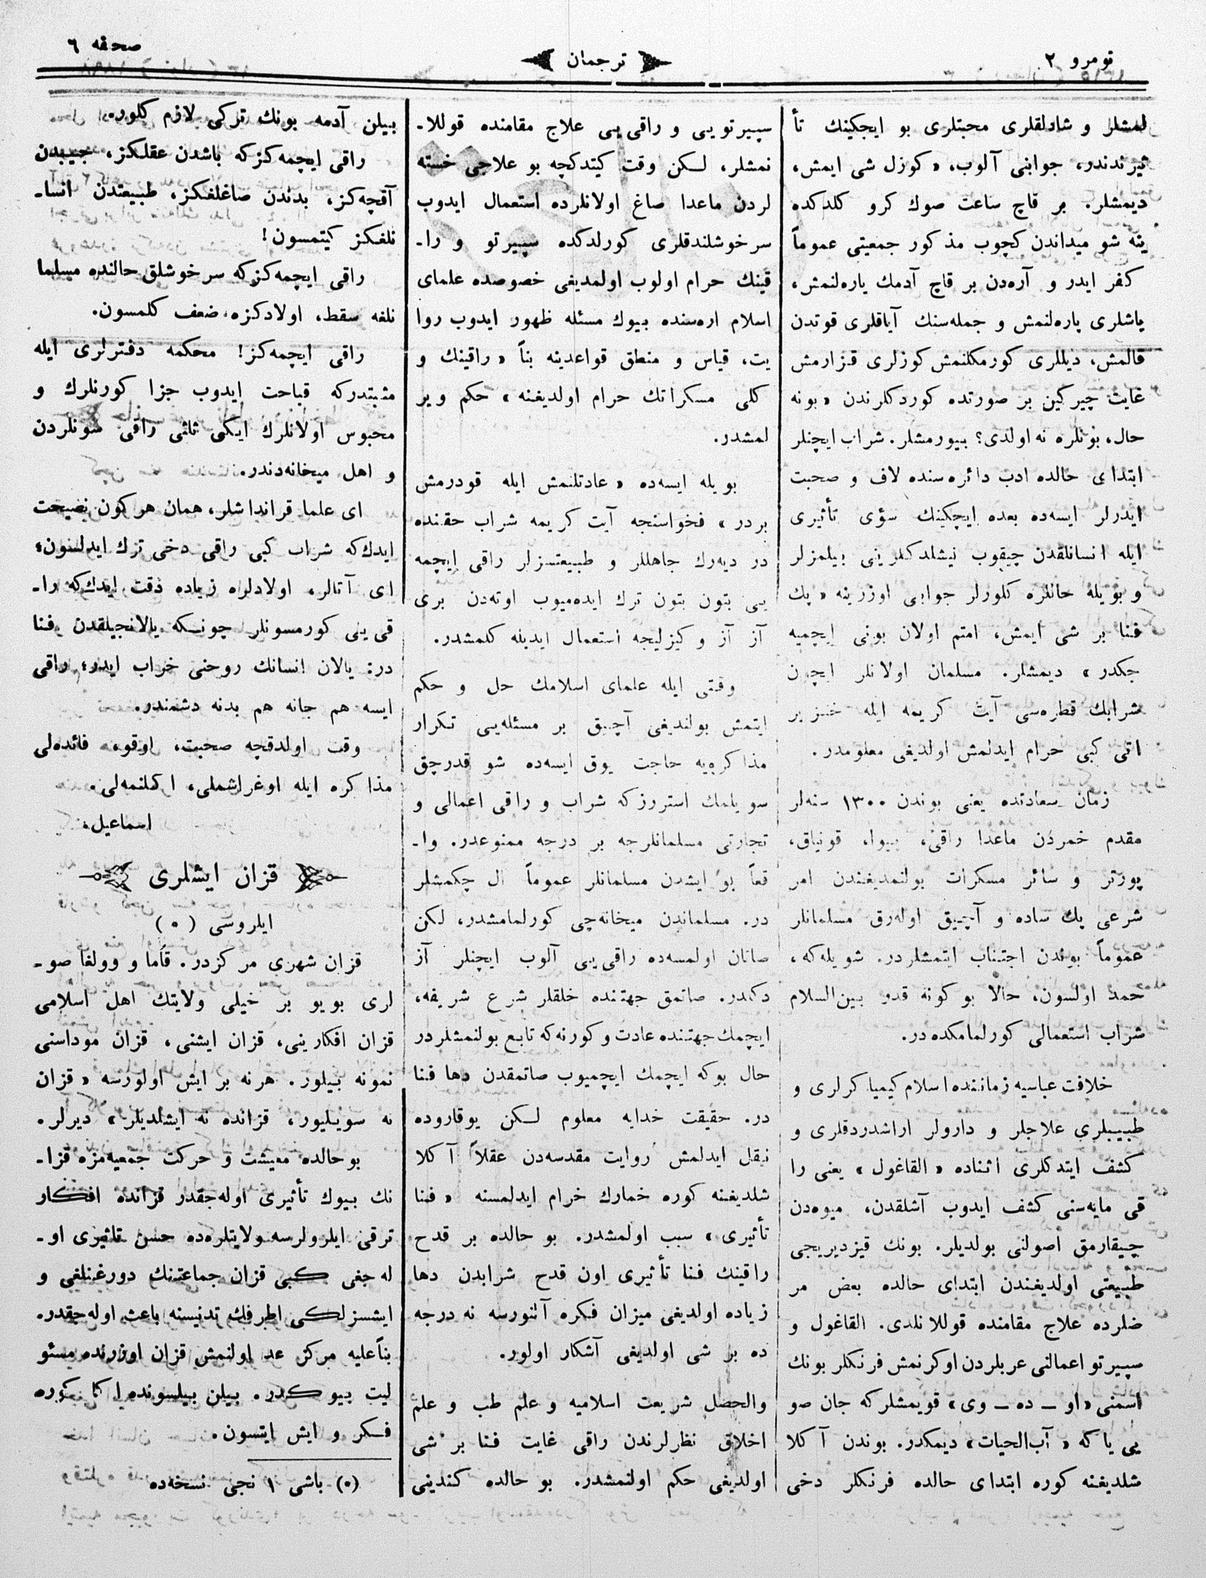 نومرو ٢
ترجمان
صحفه ٦
لمشلر و شادلقلری محبتلری بو ایچکینك تأ
ثیرندندر، جوابنی آلوب، «كوزل شی ایمش،
دیمشلر. بر قاچ ساعت صوك كرو كلدكده
ینه شو میداندن كچوب مذكور جمعیتی عموماً
كفر ایدر و آره‌دن بر قاچ آدمك یاره‌لنمش،
یاشلری پاره‌لنمش و جمله‌سنك آیاقلری قوتدن
قالمش، دیللری كورمكلنمش كوزلری قزارمش
غایت چیركین بر صورتده كوردكلرندن «بونه
حال، بونلره نه اولدی؟ بیورمشلر. شراب ایچنلر
ابتدای حالده ادب دائره‌سنده لاف و صحبت
ایدرلر ایسه‌ده بعده ایچكینك سؤی تأثیری
ایله انسانلقدن چیقوب نیشلدكلرینی بیلمزلر
و بویله حاللره كلورلر جوابی اوزرینه «پك
فنا بر شی ایمش، امتم اولان بونی ایچمیه
جكدر» دیمشلر. مسلمان اولانلر ایچون
شرابك قطره‌سی آیت كریمه ایله خنزیر
اتی كبی حرام ایدلمش اولدیغی معلومدر.
زمان سعادتده یعنی بوندن ١٣٠٠ سنه‌لر
مقدم خمردن ماعدا راقی، پیوا، قونیاق،
پورتر و سائر مسكرات بولنمدیغندن امر
شرعی پك ساده و آچیق اوله‌رق مسلمانلر
عموماً بوندن اجتناب ایتمشلردر. شویله‌كه،
حمد اولسون، حالا بو كونه قدر بین‌السلام
شراب استعمالی كورلمامكده در.
خلافت عباسیه زماننده اسلام كیمیا كرلری و
طبیبلری علاجلر و دارولر اراشدردقلری و
كشف ایتدكلری اثناده «القاغول» یعنی را
قی مایه‌سنی كشف ایدوب آشلقدن، میوه‌دن
چیقارمق اصولنی بولدیلر. بونك قیزدیریجی
طبیعتی اولدیغندن ابتدای حالده بعض مر
ضلرده علاج مقامنده قوللانلدی. القاغول و
سپیرتو اعمالنی عربلردن اوكرنمش فرنكلر بونك
اسمنی «او ـ ده ـ وی» قویمشلركه جان صو
یی یا كه «آب‌الحیات» دیمكدر. بوندن آكلا
شلدیغنه كوره ابتدای حالده فرنكلر دخی
سپیرتویی و راقی یی علاج مقامنده قوللا-
نمشلر، لكن وقت كیتدكچه بو علاجی خسته
لردن ماعدا صاغ اولانلرده استعمال ایدوب
سرخوشلندقلری كورلدكده سپیرتو و را-
قینك حرام اولوب اولمدیغی خصوصده علمای
اسلام اره‌سنده بیوك مسئله ظهور ایدوب روا
یت، قیاس و منطق قواعدینه بناً «راقینك و
كلی مسكراتك حرام اولدیغنه» حكم ویر
لمشدر.
بویله ایسه‌ده «عادتلنمش ایله قودرمش
بردر» فحواسنجه آیت كریمه شراب حقنده
در دیه‌رك جاهللر و طبیعتسزلر راقی ایچمه
یی بتون بتون ترك ایده‌میوب اوته‌دن بری
آز آز و كیزلیجه استعمال ایدیله كلمشدر.
وقتی ایله علمای اسلامك حل و حكم
ایتمش بولندیغی آچیق بر مسئله‌یی تكرار
مذاكره‌یه حاجت یوق ایسه‌ده شو قدرجق
سویلمك استرزكه شراب و راقی اعمالی و
تجارتی مسلمانلرجه بر درجه ممنوعدر. وا-
قعاً بو ایشدن مسلمانلر عموماً ال چكمشلر
در. مسلماندن میخانه‌چی كورلمامشدر، لكن
صاتان اولمسه‌ده راقی‌یی آلوب ایچنلر آز
دكلدر. صاتمق جهتنده خلقلر شرع شریفه،
ایچمك جهتنده عادت و كورنه‌كه تابع بولنمشلردر
حال بوكه ایچمك ایچمیوب صاتمقدن دها فنا
در. حقیقت خدایه معلوم لكن یوقاروده
نیقل ایدلمش روایت مقدسه‌دن عقلاً آكلا
شلدیغنه كوره خمارك حرام ایدلمسنه «فنا
تأثیری» سبب اولمشدر. بو حالده بر قدح
راقینك فنا تأثیری اون قدح شرابدن دها
زیاده اولدیغی میزان فكره آلنورسه نه درجه
ده بر شی اولدیغی آشكار اولور.
والحصل شریعت اسلامیه و علم طب و علم
اخلاق نظرلرندن راقی غایت فنا بر شی
اولدیغی حكم اولنمشدر. بو حالده كندینی
بیلن آدمه بونك تركی لازم كلوره
راقی ایچمه‌كزكه باشدن عقلكز، جیبدن
آقچه‌كز، بدندن صاغلغكز، طبیعتدن انسا-
نلغكز كیتمسون!
راقی ایچمه‌كزكه سرخوشلق حالنده مسلما
نلغه سقط، اولادكزه ضعف كلمسون.
راقی ایچمه‌كز! محكمه دفترلری ایله
مثبتدركه قباحت ایدوب جزا كورنلرك و
محبوس اولانلرك ایكی ثلثی راقی سونلردن
و اهل میخانه‌دندر.
ای علما قرانداشلر، همان هر كون نصیحت
ایدك‌كه شراب كبی راقی دخی ترك ایدلسون؛
ای آتالر، اولادلره زیاده دقت ایدك‌كه را-
قی‌ینی كورمسونلر چونكه یالانجیلقدن فنا
در: یالان انسانك روحنی خراب ایدر؛ راقی
ایسه هم جانه هم بدنه دشمندر.
وقت اولدقچه صحبت، اوقو، فائده‌لی
مذاكره ایله اوغراشملی، اكلنمه‌لی.
اسماعیل.
قزان ایشلری
ایلروسی (٥)
قزان شهری مركزدر. قاما و وولغا صو-
لری بویو بر خیلی ولایتك اهل اسلامی
قزان افكارینی، قزان ایشنی، قزان موداسنی
نمونه بیلور. هرنه بر ایش اولورسه «قزان
نه سویلیور، قزانده نه ایشلدیلر» دیرلر.
بوحالده معیشت و حركت جمعیه‌مزه قزا-
نك بیوك تأثیری اوله‌جقدر قزانده افكار
ترقی ایلرولرسه ولایتلره‌ده حسن تاثیری او-
له جغی كبی قزان جماعتنك دورغنلغی و
ایشسزلكی اطرفك تدنیسنه باعث اوله‌جقدر.
بناًعلیه مركز عد اولنمش قزان اوزرنده مسئو
لیت بیوكدر. بیلن بیلسونده اكا كوره
فكر و ایش ایتسون.
(٥) باشی ١ نجی نسخه‌ده